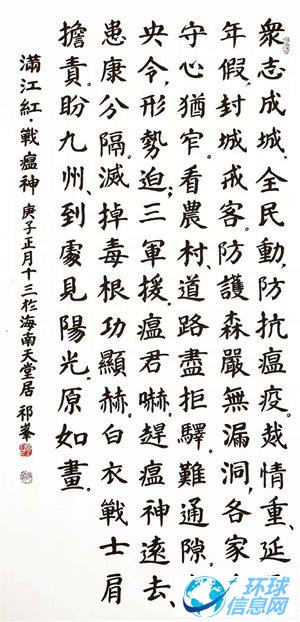 衆志成城,全民動,防抗瘟疫。烖情重、延
年假,封城戒客。防護森嚴無漏洞,各家
守心猶窄。看農村、道路盡拒驛。難通隙。
央令,形勢迫;三軍援,瘟君嚇。趕瘟神遠去、
患康分隔。滅掉毒根功顯赫。白衣戰士肩
擔責。盼九州、到處見陽光,原如畫。
滿江紅·戰瘟神 庚子正月十三於海南天堂居 祁峯
环球
信息网